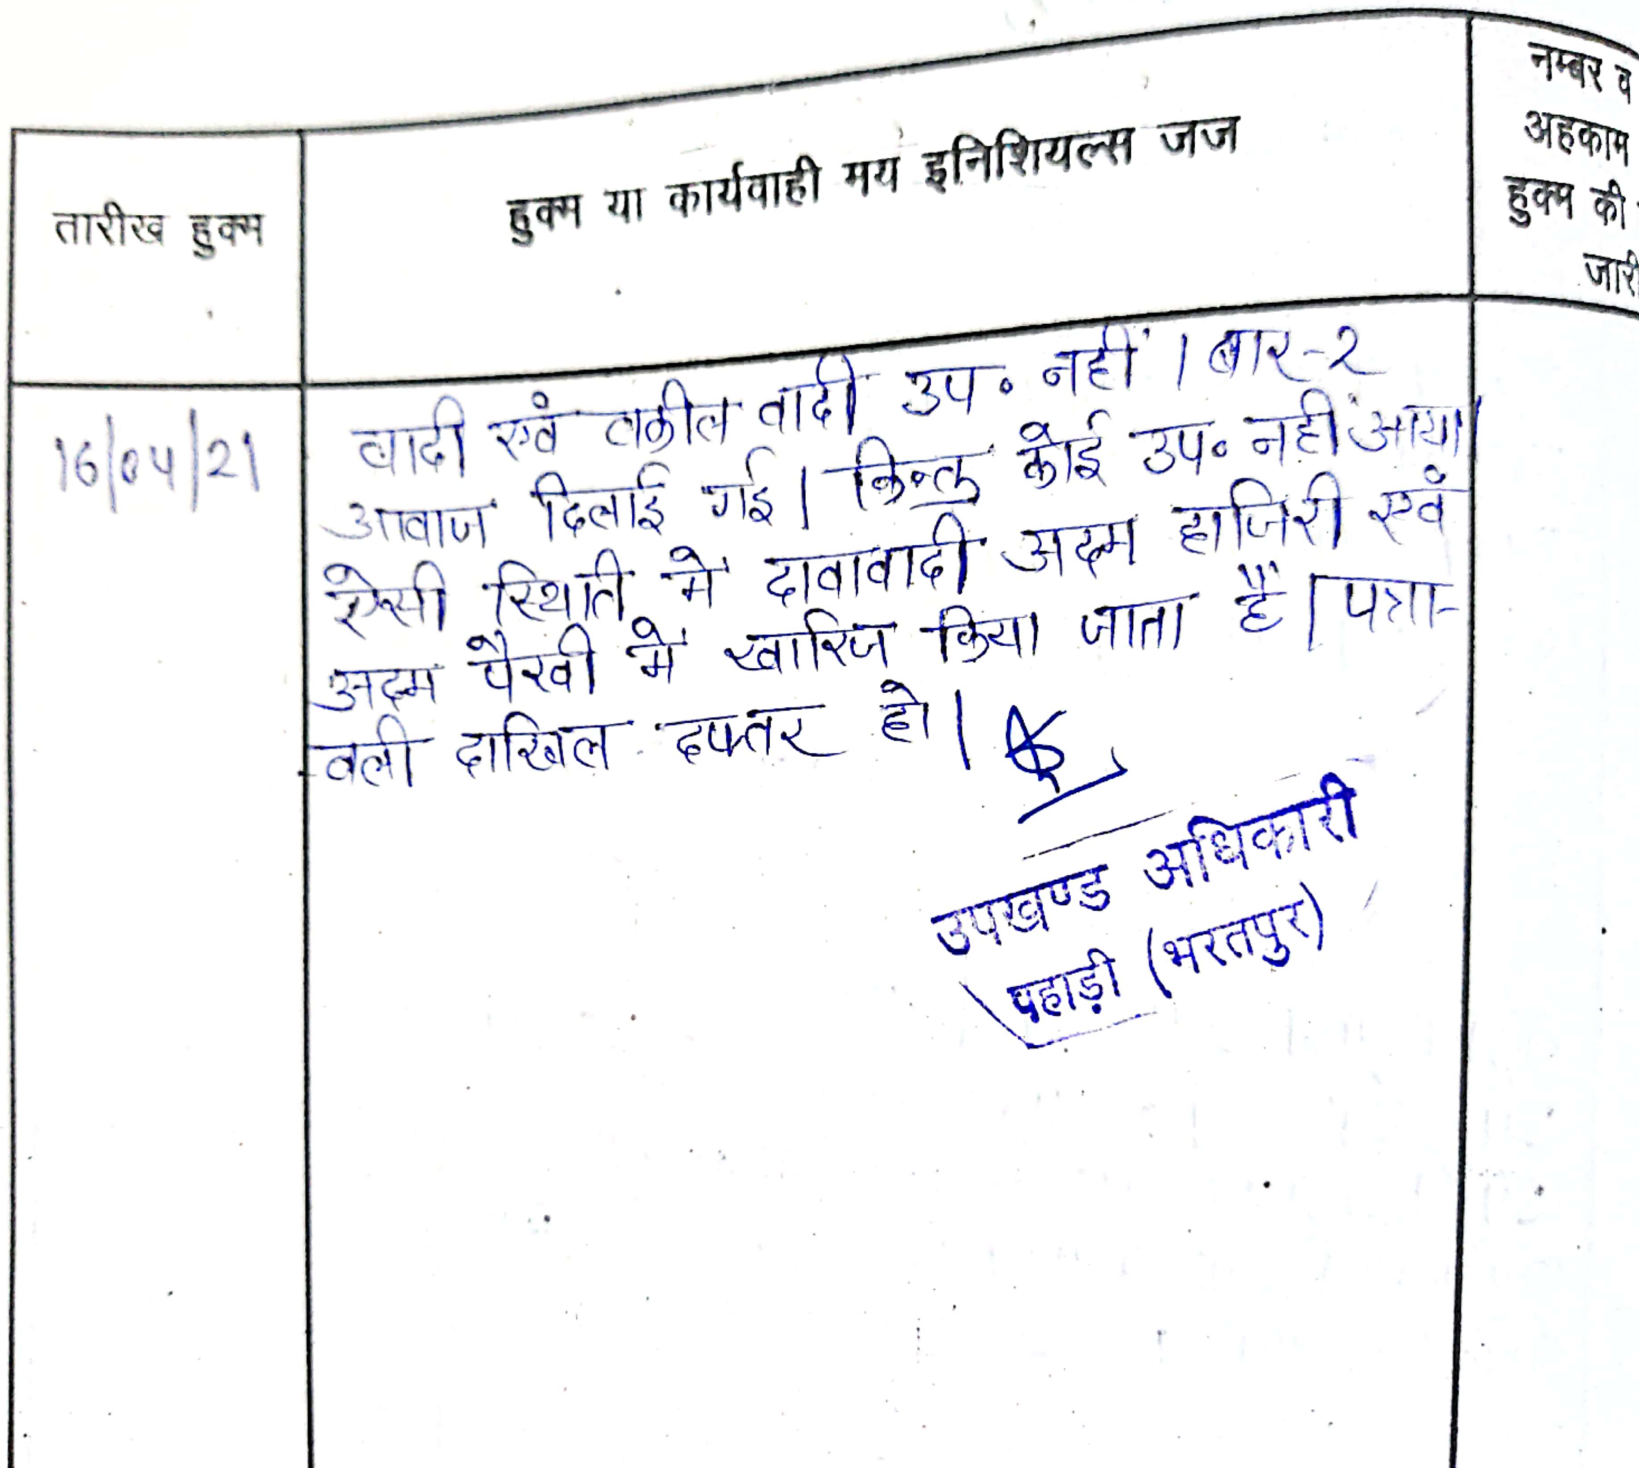 तारीख हुक्म
हुक्म या कार्यवाही मय इनिशियल्स जज
नम्बर व
अहकाम
हुक्म की
जारी
16/04/21
वादी एवं वकील वादी उप॰ नहीं । बार-२
आवाज दिलाई गई । किन्तु कोई उप॰ नहीं आया ।
ऐसी स्थिति में दावावादी अदम हाजिरी एवं
अदम पैरवी में खारिज किया जाता है । पत्रा-
वली दाखिल दफ्तर हो ।
उपखण्ड अधिकारी
पहाड़ी (भरतपुर)